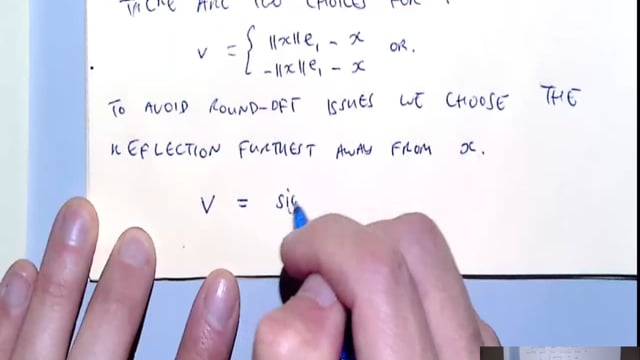 THERE ARE TWO CHOICES FOR
v = { ||x||e₁ - x OR.
-||x||e₁ - x
TO AVOID ROUND-OFF ISSUES WE CHOOSE THE
REFLECTION FURTHEST AWAY FROM x.
V = sig